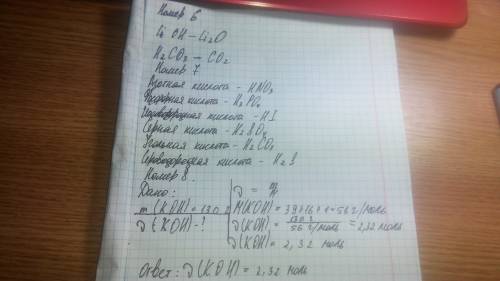 Номер 6
LiOH - Li₂O
H₂CO₃ - CO₂
Номер 7
Азотная кислота - HNO₃
Фосфорная кислота - H₃PO₄
Йодоводородная кислота - HI
Серная кислота - H₂SO₄
Угольная кислота - H₂CO₃
Сероводородная кислота - H₂S
Номер 8.
Дано: ν = m/M
m(KOH) = 130 г M(KOH) = 39+16+1=56 г/моль
ν(KOH) - ! ν(KOH) = 130 г / 56 г/моль = 2,32 моль
ν(KOH) = 2,32 моль
Ответ: ν(KOH) = 2,32 моль